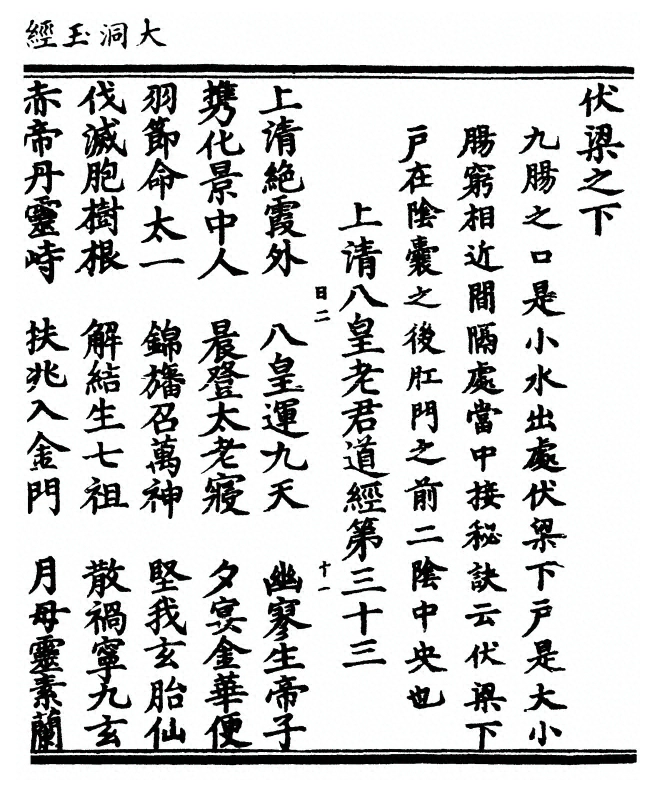 大洞玉經
伏梁之下
九腸之口是小水出處伏梁下戶是大小
腸窮相近間隔處當中接秘訣云伏梁下
戶在陰囊之後肛門之前二陰中央也
上清八皇老君道經第三十三
日二
十一
上清絕霞外 八皇運九天 幽寥生帝子
携化景中人 晨登太老寢 夕宴金華便
羽節命太一 錦旛召萬神 堅我玄胎仙
伐滅胞樹根 解結生七祖 散禍寧九玄
赤帝丹靈峙 扶兆入金門 月母靈素蘭